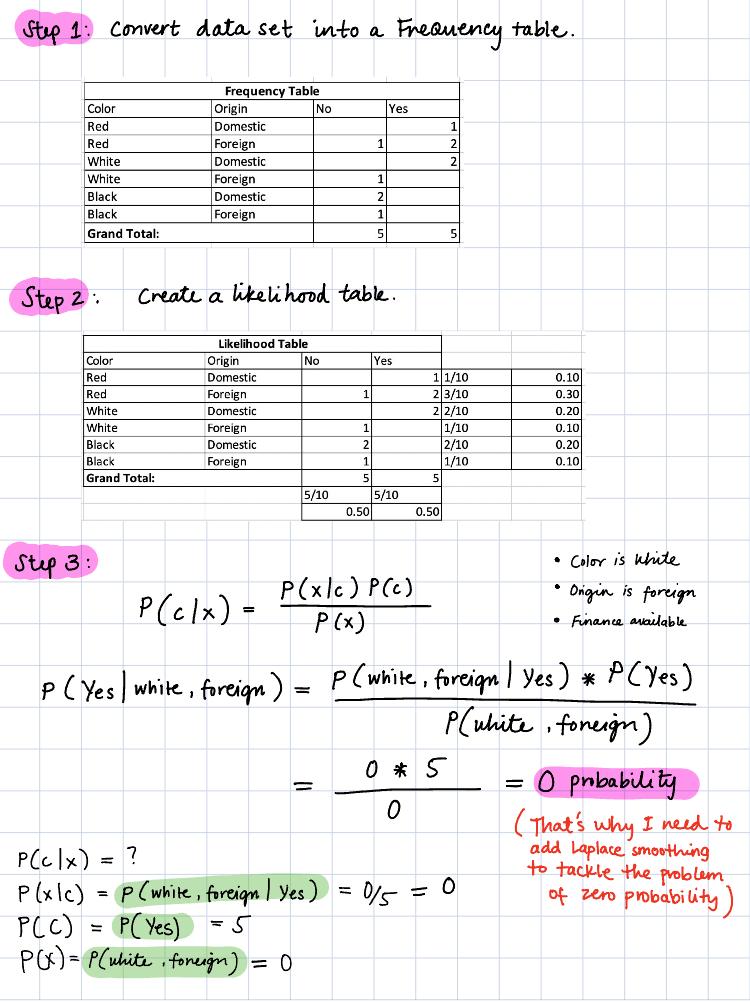 Step 1: Convert data set into a Frequency table.
Frequency Table
Color Origin No Yes
Red Domestic 1
Red Foreign 1 2
White Domestic 2
White Foreign 1
Black Domestic 2
Black Foreign 1
Grand Total: 5 5
Step 2: Create a likelihood table.
Likelihood Table
Color Origin No Yes
Red Domestic 1 1/10 0.10
Red Foreign 1 2 3/10 0.30
White Domestic 2 2/10 0.20
White Foreign 1 1/10 0.10
Black Domestic 2 2/10 0.20
Black Foreign 1 1/10 0.10
Grand Total: 5 5
5/10 5/10
0.50 0.50
Step 3:
• Color is White
• Origin is foreign
• Finance available
P(c|x) = P(x|c) P(c) / P(x)
P(Yes|white, foreign) = P(white, foreign | Yes) * P(Yes) / P(white, foreign)
= 0 * 5 / 0 = 0 probability
(That's why I need to
add Laplace smoothing
to tackle the problem
of zero probability)
P(c|x) = ?
P(x|c) = P(white, foreign | Yes) = 0/5 = 0
P(C) = P(Yes) = 5
P(x) = P(white, foreign) = 0